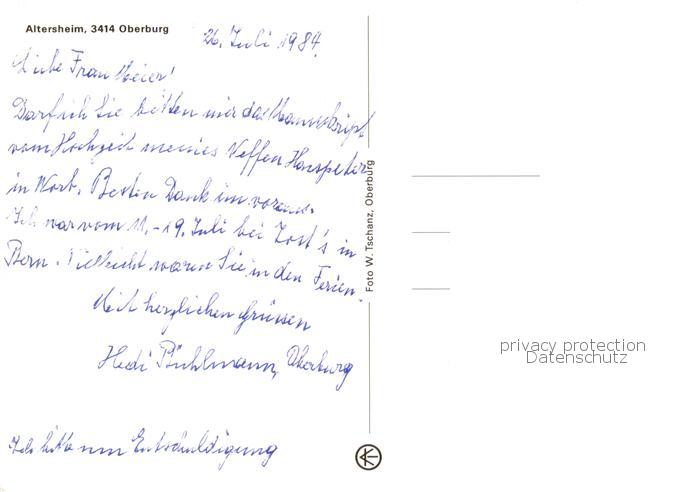 Altersheim, 3414 Oberburg
26. Juli 1984.
Liebe Frau Meier!
Darf ich Sie bitten mir das Manuskript
vom Hochzeit meines Neffen Hanspeter
in Worb. Besten Dank im voraus.
Ich war vom 11. - 19. Juli bei Jost's in
Bern. Vielleicht waren Sie in den Ferien.
Mit herzlichen Grüssen
Hedi Bühlmann, Oberburg
Ich bitte um Entschuldigung
Foto W. Tschanz, Oberburg
privacy protection
Datenschutz